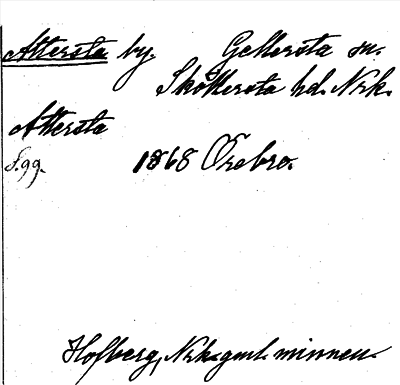 Attersta by. Gellersta sn.
Sköllersta hd. Nrk.
Attersta
S. 99. 1868 Örebro.
Hofberg, Nrks gml. minnen.